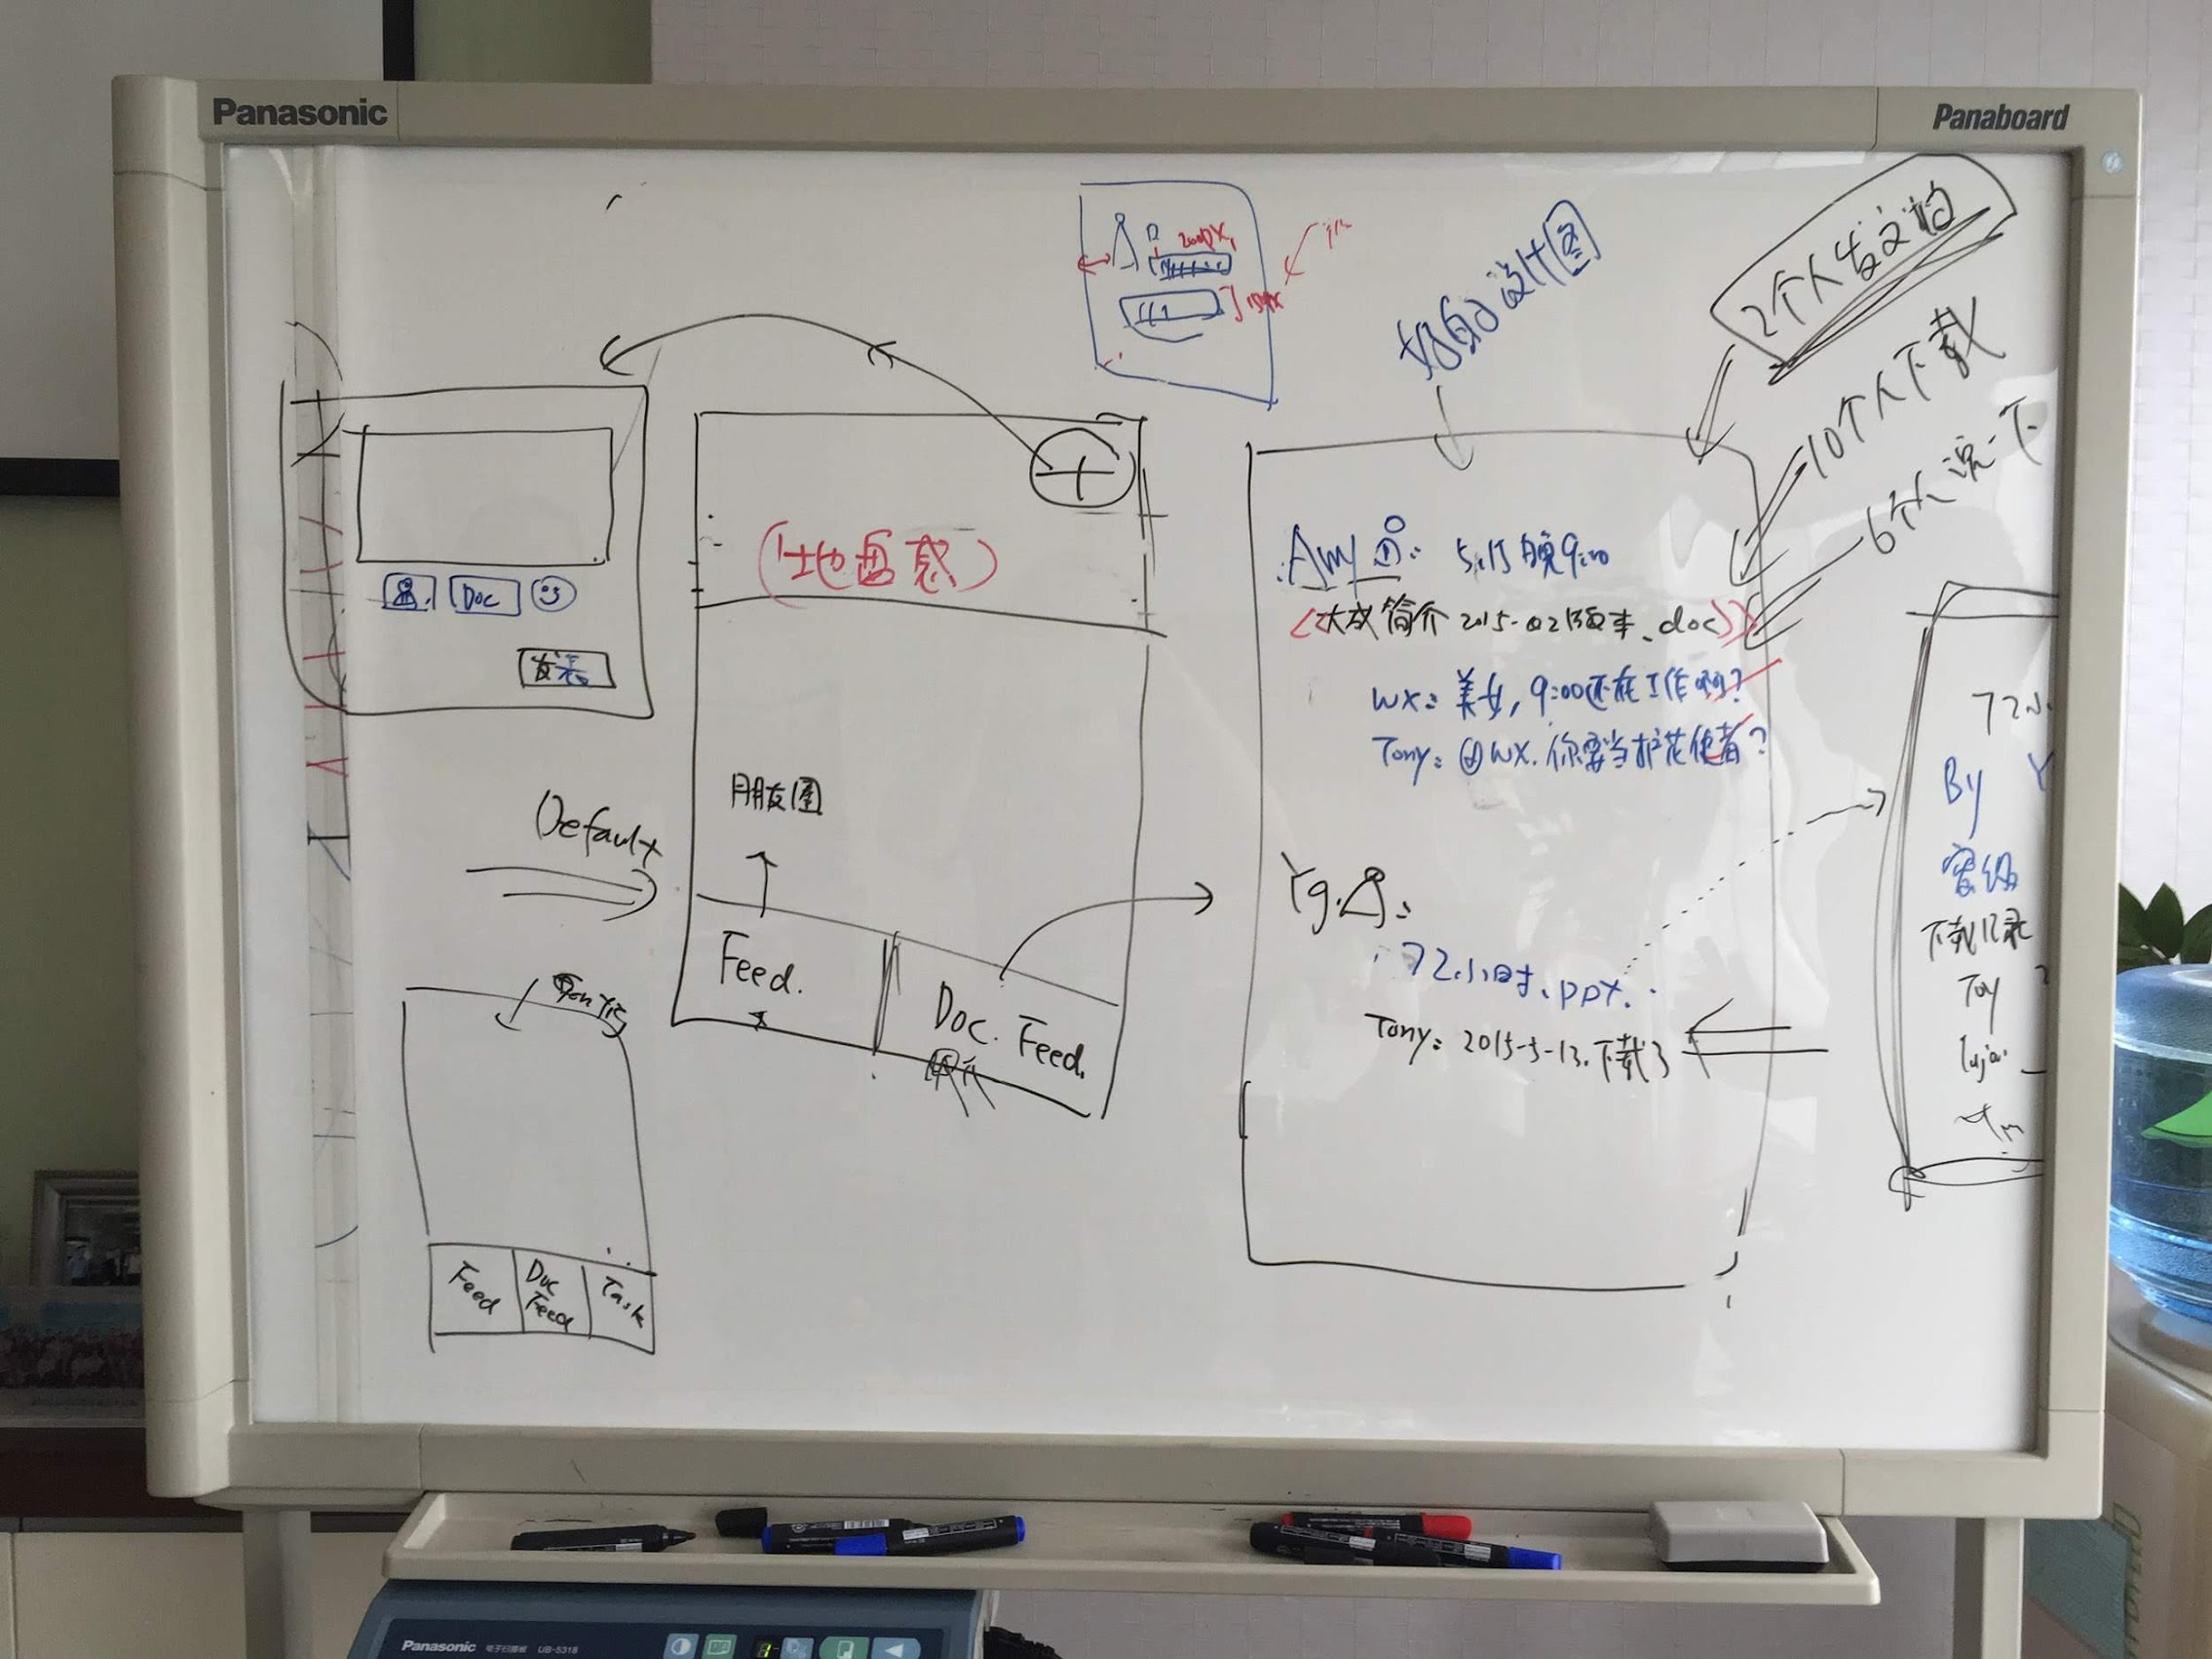 Panasonic
Panaboard
200px
2个人发这怕
设计图
10个人下载
6个人说一下
(土地番惑)
Doc
发表
Amy 5.15 晚9:00
《大成简介 2015-02版本.doc》
WX: 美女, 9:00还在工作啊?
Tony: @WX. 你要当护花使者?
朋友圈
Default
Feed.
Doc. Feed.
Yg.
72小时.ppt.
Tony: 2015-5-13.下载了
By
密级
下载记录
Toy
Feed
Doc Feed
Task
Panasonic 电子白板 UB-5318